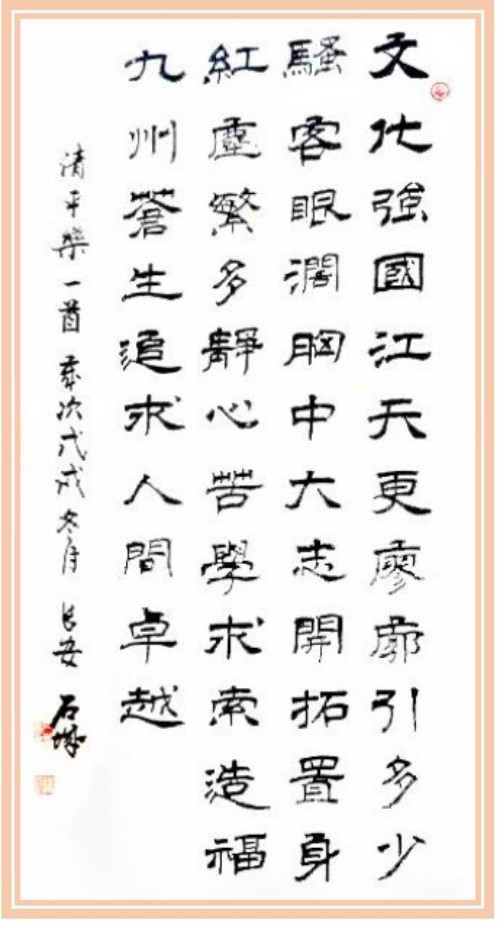 文化強國江天更廖廓引多少
騷客眼濶胸中大志開拓置身
紅塵繁多靜心苦學求索造福
九州蒼生追求人間卓越
清平樂一首 歲次戊戌冬月 長安